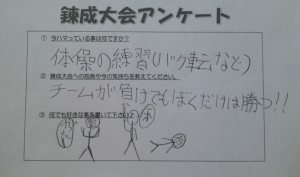 錬成大会アンケート
① 今ハマっている事は何ですか?
体操の練習(バク転など)
② 錬成大会への抱負や今の気持ちを教えてください。
チームが負けてもぼくだけは勝つ!!
③ 何でも好きな事を書いて下さい♪